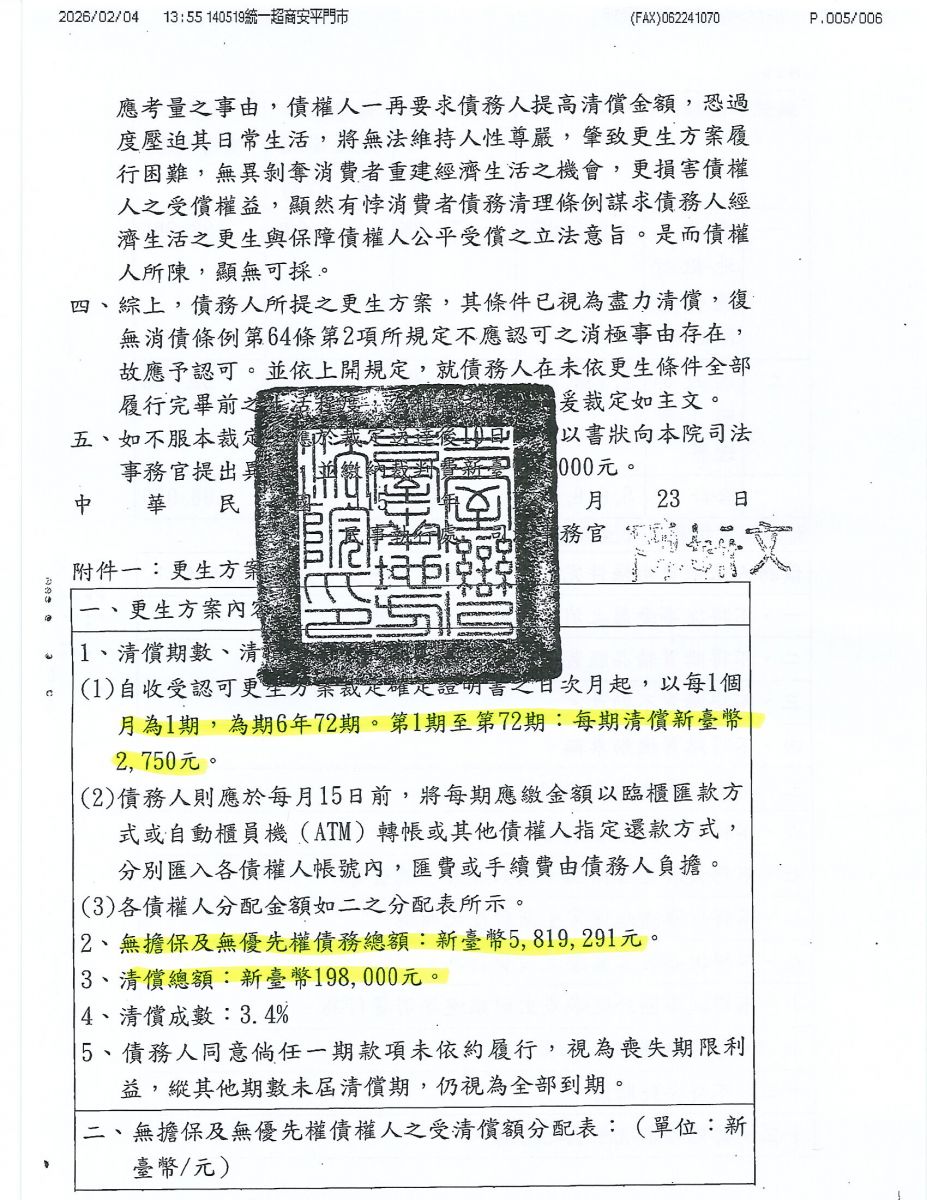 2026/02/04 13:55 140519統一超商安平門市 (FAX)062241070 P.005/006
應考量之事由，債權人一再要求債務人提高清償金額，恐過
度壓迫其日常生活，將無法維持人性尊嚴，肇致更生方案履
行困難，無異剝奪消費者重建經濟生活之機會，更損害債權
人之受償權益，顯然有悖消費者債務清理條例謀求債務人經
濟生活之更生與保障債權人公平受償之立法意旨。是而債權
人所陳，顯無可採。
四、綜上，債務人所提之更生方案，其條件已視為盡力清償，復
無消債條例第64條第2項所規定不應認可之消極事由存在，
故應予認可。並依上開規定，就債務人在未依更生條件全部
履行完畢前之生活程度，爰裁定如主文。
五、如不服本裁定，應於裁定送達後10日以書狀向本院司法
事務官提出異，並繳納裁判費新臺000元。
中華民國年月23日
民事執行處司務官
附件一：更生方案
一、更生方案內容
1、清償期數、清
(1)自收受認可更生方案裁定確定證明書之日次月起，以每1個
月為1期，為期6年72期。第1期至第72期：每期清償新臺幣
2,750元。
(2)債務人則應於每月15日前，將每期應繳金額以臨櫃匯款方
式或自動櫃員機（ATM）轉帳或其他債權人指定還款方式，
分別匯入各債權人帳號內，匯費或手續費由債務人負擔。
(3)各債權人分配金額如二之分配表所示。
2、無擔保及無優先權債務總額：新臺幣5,819,291元。
3、清償總額：新臺幣198,000元。
4、清償成數：3.4%
5、債務人同意倘任一期款項未依約履行，視為喪失期限利
益，縱其他期數未屆清償期，仍視為全部到期。
二、無擔保及無優先權債權人之受清償額分配表：（單位：新
臺幣/元）